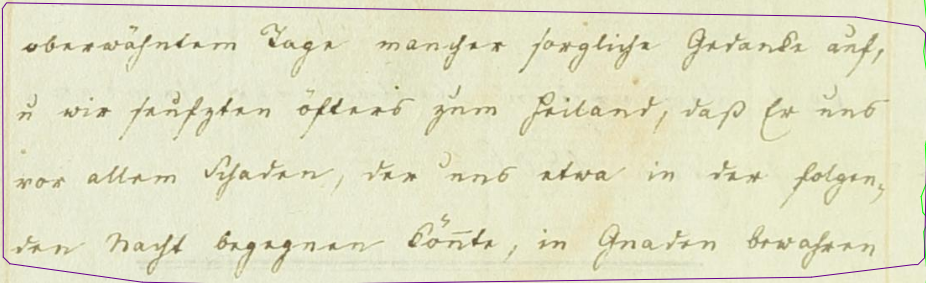 oberwähntem Tage mancher sorgliche Gedanke auf,
u wir seufzten öfters zum Heiland, daß Er uns
vor allem Schaden, der uns etwa in der folgen,
den Nacht begegnen kön̄te, in Gnaden bewahren